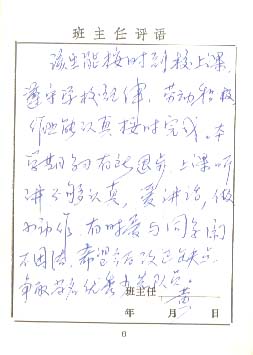 班主任评语
该生能按时到校上课，
遵守学校纪律，劳动积极
作业能认真按时完成。本
学期有进步，上课听
讲不够认真，爱讲话，做
小动作，有时爱与同学闹
不团结，希望今后改正缺点
争取当名优秀少先队员。
班主任 黄
年 月 日